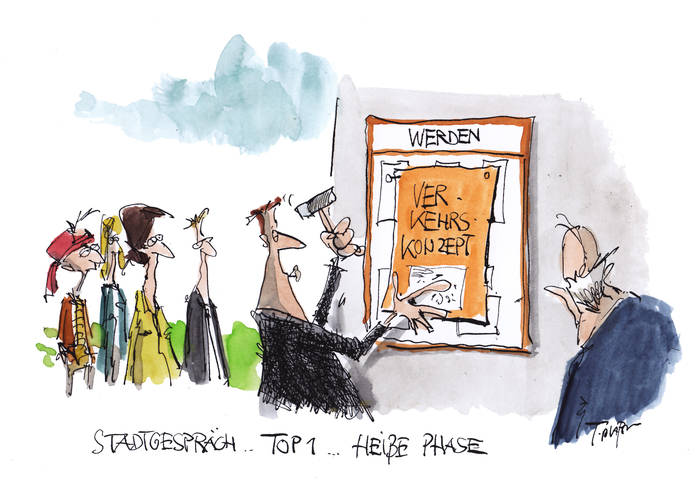 WERDEN
VER-
KEHRS-
KONZEPT
STADTGESPRÄCH .. TOP 1 ... HEIßE PHASE